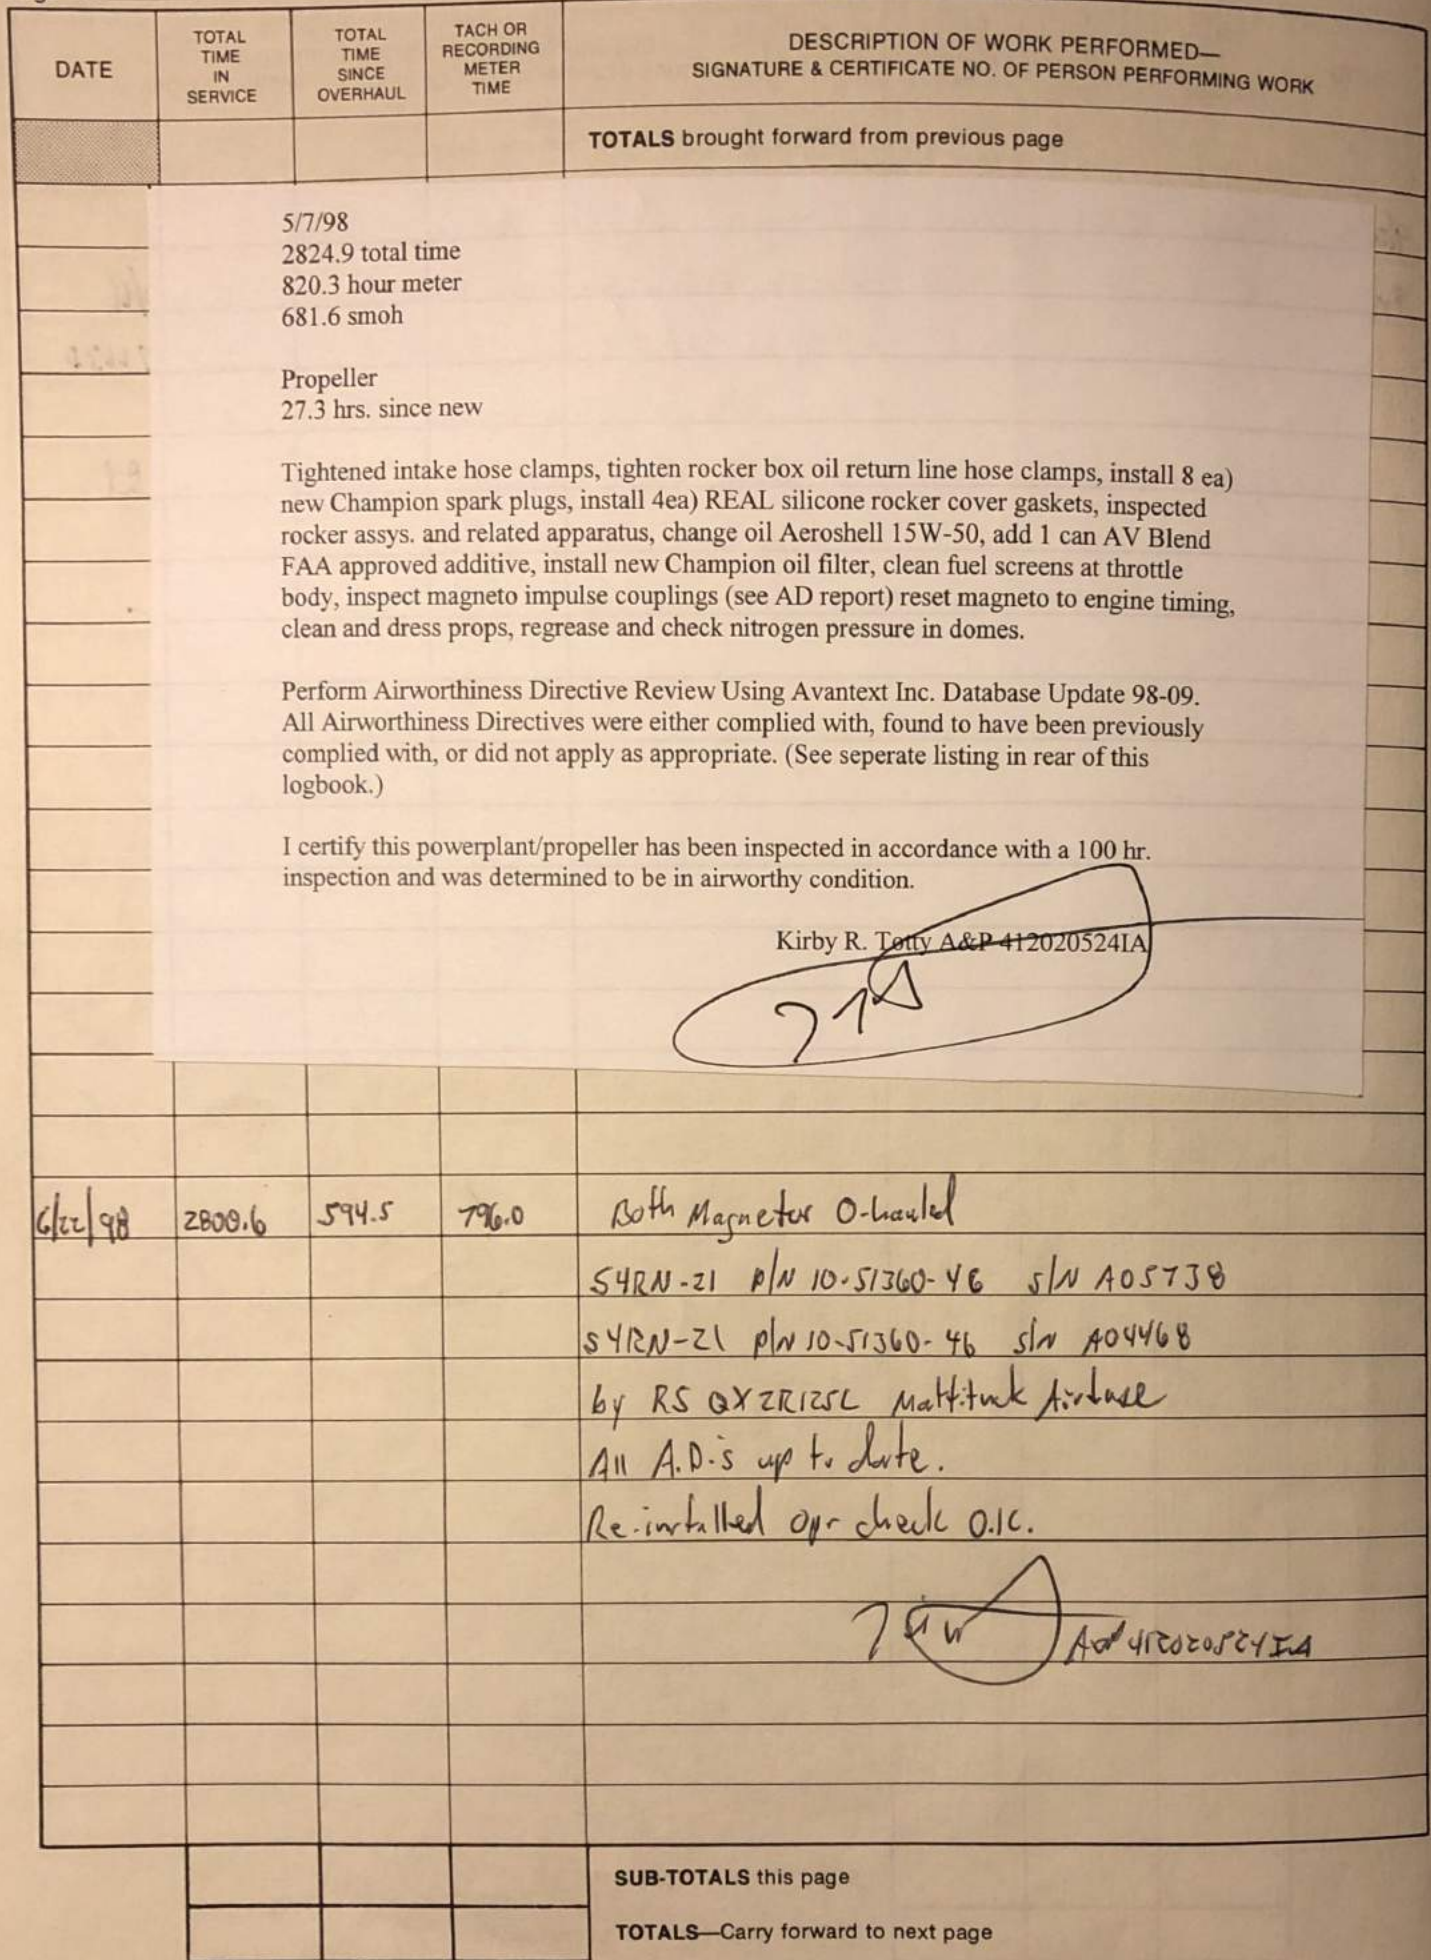 DATE
TOTAL
TIME
IN
SERVICE
TOTAL
TIME
SINCE
OVERHAUL
TACH OR
RECORDING
METER
TIME
DESCRIPTION OF WORK PERFORMED—
SIGNATURE & CERTIFICATE NO. OF PERSON PERFORMING WORK
TOTALS brought forward from previous page
5/7/98
2824.9 total time
820.3 hour meter
681.6 smoh
Propeller
27.3 hrs. since new
Tightened intake hose clamps, tighten rocker box oil return line hose clamps, install 8 ea)
new Champion spark plugs, install 4ea) REAL silicone rocker cover gaskets, inspected
rocker assys. and related apparatus, change oil Aeroshell 15W-50, add 1 can AV Blend
FAA approved additive, install new Champion oil filter, clean fuel screens at throttle
body, inspect magneto impulse couplings (see AD report) reset magneto to engine timing,
clean and dress props, regrease and check nitrogen pressure in domes.
Perform Airworthiness Directive Review Using Avantext Inc. Database Update 98-09.
All Airworthiness Directives were either complied with, found to have been previously
complied with, or did not apply as appropriate. (See seperate listing in rear of this
logbook.)
I certify this powerplant/propeller has been inspected in accordance with a 100 hr.
inspection and was determined to be in airworthy condition.
Kirby R. Totty A&P 412020524IA
6/22/98 2800.6 594.5 796.0 Both Magnetos O-hauled
S4RN-21 P/N 10-51360-46 S/N A05738
S4RN-21 P/N 10-51360-46 S/N A04468
by RS QX2R125L Mattituck Airbase
All A.D.'s up to date.
Re-installed opr check O.K.
A&P 412020524IA
SUB-TOTALS this page
TOTALS—Carry forward to next page